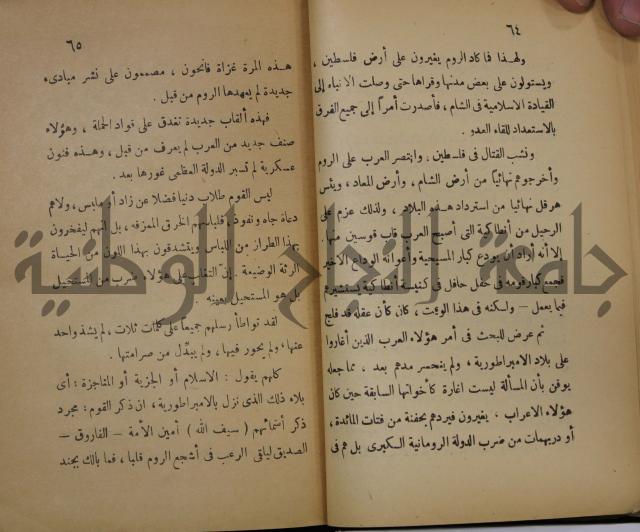 ٦٤
ولهذا فما كاد الروم يغيرون على أرض فلسطين ،
ويستولون على بعض مدنها وقراها حتى وصلت الأنباء إلى
القيادة الاسلامية فى الشام ، فأصدرت أمراً إلى جميع الفرق
بالاستعداد للقاء العدو .
ونشب القتال فى فلسطين . وانتصر العرب على الروم
وأخرجوهم نهائياً من أرض الشام ، وأرض المعاد ، ويئس
هرقل نهائيا من استرداد هذه البلاد ، ولذلك عزم على
الرحيل من أنطاكية التى أصبح العرب قاب قوسين منها .
إلا أنه أراد أن يودع كبار المسيحية وأعوانه الوداع الأخير
فجمع كبار قومه فى حفل حافل فى كنيسة أنطاكية يستشيرهم
فيما يعمل – ولكنه فى هذا الوقت ، كان كأن عقله قد فلج
ثم عرض للبحث فى أمر هؤلاء العرب الذين أغاروا
على بلاد الامبراطورية ، ولم ينحسر مدهم بعد ، مما جعله
يوقن بأن المسألة ليست اغارة كأخواتها السابقة حين كان
هؤلاء الاعراب . يغيرون فيردهم بحفنة من فتات المائدة ،
أو دريهمات من ضرب الدولة الرومانية الكبرى بل هم فى
٦٥
هذه المرة غزاة فاتحون ، مصممون على نشر مبادىء
جديدة لم يعهدها الروم من قبل .
فهذه ألقاب جديدة تغدق على قواد الحملة ، وهؤلاء
صنف جديد من العرب لم يعرف من قبل ، وهذه فنون
عسكرية لم تسبر الدولة العظمى غورها بعد .
ليس القوم طلاب دنيا فضلا عن زاد أو ملبس ، ولاهم
دعاة جاه ونفوذ ، فلباسهم الخرق الممزقه ، بل انهم ليفخرون
بهذا الطراز من اللباس ويتشدقون بهذا اللون من الحياة
الرثة الوضيعة . إن التغلب على هؤلاء ضرب من المستحيل
بل هو المستحيل بعينه .
لقد تواطأ رسلهم جميعاً على كلمات ثلاث ، لم يشذ واحد
عنها ، ولم يحور فيها ، ولم يبدِّل من صرامتها .
كلهم يقول : الاسلام أو الجزية أو المناجزة : أى
بلاء ذلك الذى نزل بالامبراطورية ، ان ذكر القوم : مجرد
ذكر أسمائهم ( سيف الله ) أمين الأمة – الفاروق –
الصديق ليلقى الرعب فى أشجع الروم قلبا ، فما بالك بجند
جامعة النجاح الوطنية